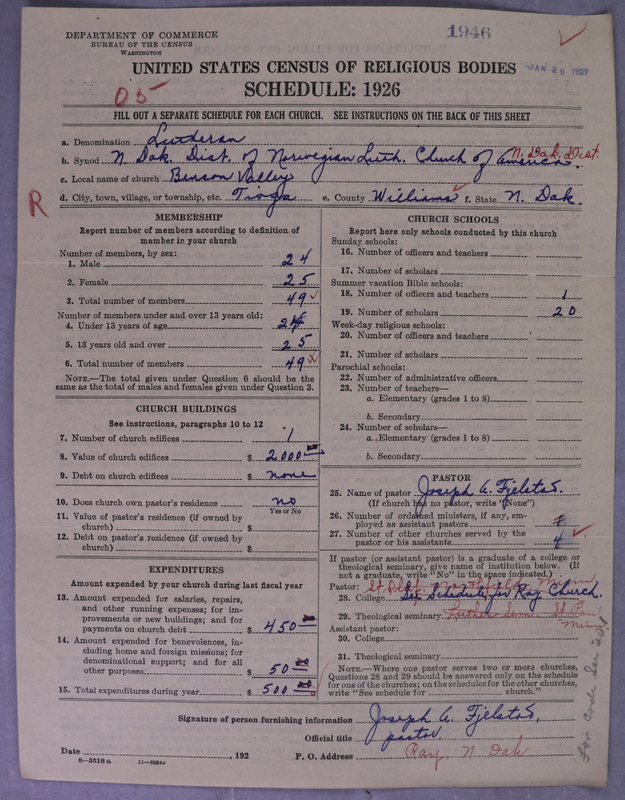 DEPARTMENT OF COMMERCE
BUREAU OF THE CENSUS
WASHINGTON
1946
JAN 29 1927
UNITED STATES CENSUS OF RELIGIOUS BODIES
SCHEDULE: 1926
05
FILL OUT A SEPARATE SCHEDULE FOR EACH CHURCH. SEE INSTRUCTIONS ON THE BACK OF THIS SHEET
a. Denomination Lutheran
b. Synod N. Dak. Dist. of Norwegian Luth. Church of America. N. Dak. Dist.
c. Local name of church Benson Valley
d. City, town, village, or township, etc. Tioga e. County Williams f. State N. Dak.
R
MEMBERSHIP
Report number of members according to definition of
member in your church
Number of members, by sex:
1. Male 24
2. Female 25
3. Total number of members 49
Number of members under and over 13 years old:
4. Under 13 years of age 24
5. 13 years old and over 25
6. Total number of members 49
NOTE.—The total given under Question 6 should be
same as the total of males and females given under Question 3.
CHURCH BUILDINGS
See instructions, paragraphs 10 to 12
7. Number of church edifices 1
8. Value of church edifices $ 2000.00
9. Debt on church edifices $ none
10. Does church own pastor's residence no
Yes or No
11. Value of pastor's residence (if owned by
church) $
12. Debt on pastor's residence (if owned by
church) $
EXPENDITURES
Amount expended by your church during last fiscal year
13. Amount expended for salaries, repairs,
and other running expenses; for im-
provements or new buildings; and for
payments on church debt $ 450.00
14. Amount expended for benevolences, in-
cluding home and foreign missions; for
denominational support; and for all
other purposes $ 50.00
15. Total expenditures during year $ 500.00
CHURCH SCHOOLS
Report here only schools conducted by this church
Sunday schools:
16. Number of officers and teachers
17. Number of scholars
Summer vacation Bible schools:
18. Number of officers and teachers 1
19. Number of scholars 20
Week-day religious schools:
20. Number of officers and teachers
21. Number of scholars
Parochial schools:
22. Number of administrative officers
23. Number of teachers—
a. Elementary (grades 1 to 8)
b. Secondary
24. Number of scholars—
a. Elementary (grades 1 to 8)
b. Secondary
PASTOR
25. Name of pastor Joseph A. Fjelstad.
(If church has no pastor, write "None")
26. Number of ordained ministers, if any, em-
ployed as assistant pastors
27. Number of other churches served by the
pastor or his assistants 4
If pastor (or assistant pastor) is a graduate of a college or
theological seminary, give name of institution below. (If
not a graduate, write "No" in the space indicated.)
Pastor: St. Olaf, Northfield, Minn
28. College See Schedule for Ray Church.
29. Theological seminary Luther Sem. St. Paul,
Minn.
Assistant pastor:
30. College
31. Theological seminary
NOTE.—Where one pastor serves two or more churches,
Questions 28 and 29 should be answered only on the schedule
for one of the churches; on the schedules for the other churches,
write "See schedule for church."
Signature of person furnishing information Joseph A. Fjelstad,
Official title pastor.
Date , 192 P. O. Address Ray, N. Dak
8—5518a 11—9234a